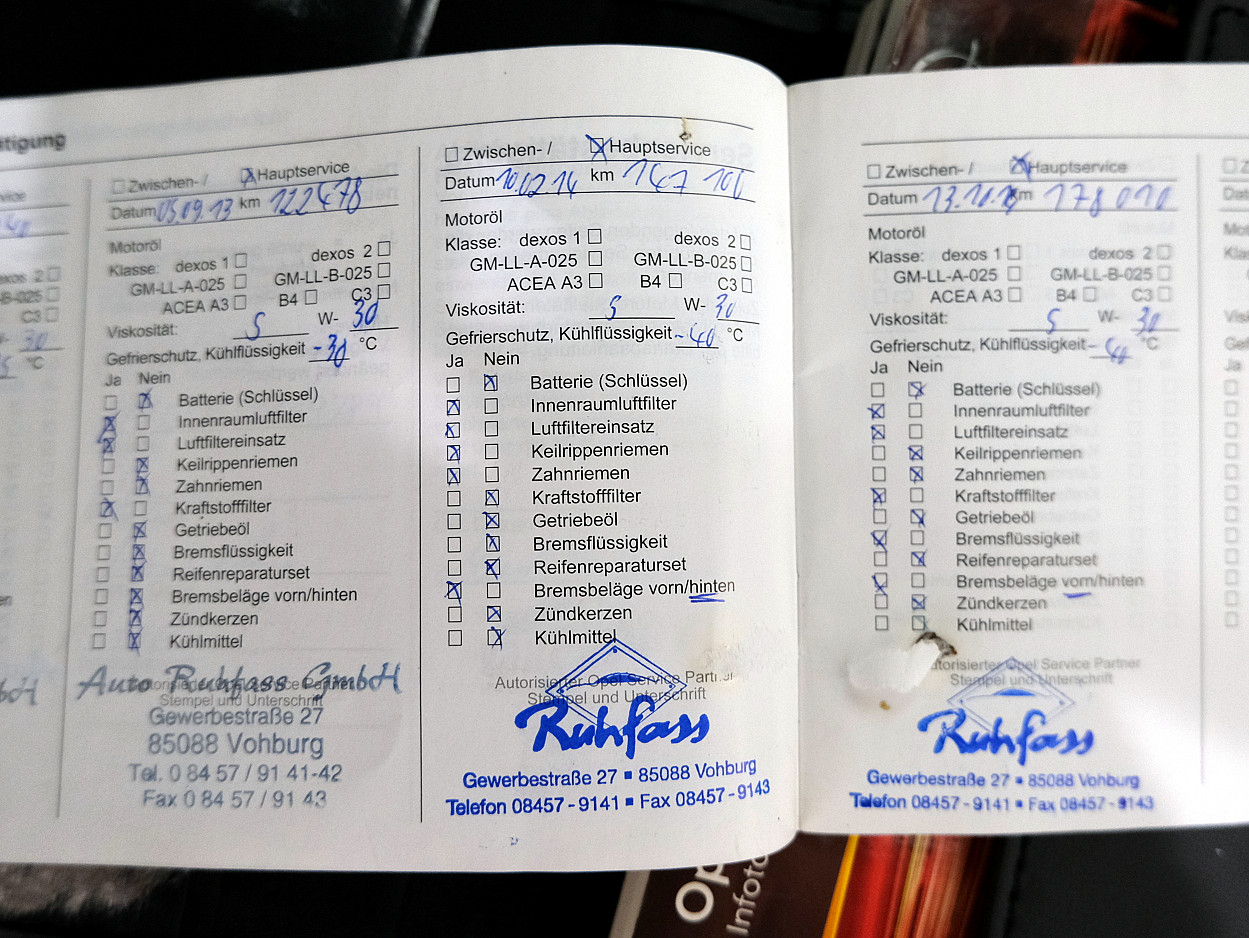 tigung
Zwischen- / Hauptservice
Datum 05.09.13 km 122478
Motoröl
Klasse: dexos 1 dexos 2
GM-LL-A-025 GM-LL-B-025
ACEA A3 B4 C3
Viskosität: 5 W- 30
Gefrierschutz, Kühlflüssigkeit -30 °C
Ja Nein
Batterie (Schlüssel)
Innenraumluftfilter
Luftfiltereinsatz
Keilrippenriemen
Zahnriemen
Kraftstofffilter
Getriebeöl
Bremsflüssigkeit
Reifenreparaturset
Bremsbeläge vorn/hinten
Zündkerzen
Kühlmittel
Auto Ruhfass GmbH
Autorisierter Opel Service Partner
Stempel und Unterschrift
Gewerbestraße 27
85088 Vohburg
Tel. 0 84 57 / 91 41-42
Fax 0 84 57 / 91 43
Zwischen- / Hauptservice
Datum 10.02.14 km 147 100
Motoröl
Klasse: dexos 1 dexos 2
GM-LL-A-025 GM-LL-B-025
ACEA A3 B4 C3
Viskosität: 5 W- 30
Gefrierschutz, Kühlflüssigkeit -40 °C
Ja Nein
Batterie (Schlüssel)
Innenraumluftfilter
Luftfiltereinsatz
Keilrippenriemen
Zahnriemen
Kraftstofffilter
Getriebeöl
Bremsflüssigkeit
Reifenreparaturset
Bremsbeläge vorn/hinten
Zündkerzen
Kühlmittel
Autorisierter Opel Service Partner
Stempel und Unterschrift
Ruhfass
Gewerbestraße 27 ▪ 85088 Vohburg
Telefon 08457 - 9141 ▪ Fax 08457 - 9143
Zwischen- / Hauptservice
Datum km 178 010
Motoröl
Klasse: dexos 1 dexos 2
GM-LL-A-025 GM-LL-B-025
ACEA A3 B4 C3
Viskosität: 5 W- 30
Gefrierschutz, Kühlflüssigkeit -40 °C
Ja Nein
Batterie (Schlüssel)
Innenraumluftfilter
Luftfiltereinsatz
Keilrippenriemen
Zahnriemen
Kraftstofffilter
Getriebeöl
Bremsflüssigkeit
Reifenreparaturset
Bremsbeläge vorn/hinten
Zündkerzen
Kühlmittel
utorisierter Opel Service Partner
Stempel und Unterschrift
Ruhfass
Gewerbestraße 27 ▪ 85088 Vohburg
Telefon 08457 - 9141 ▪ Fax 08457 - 9143
Op
Infota